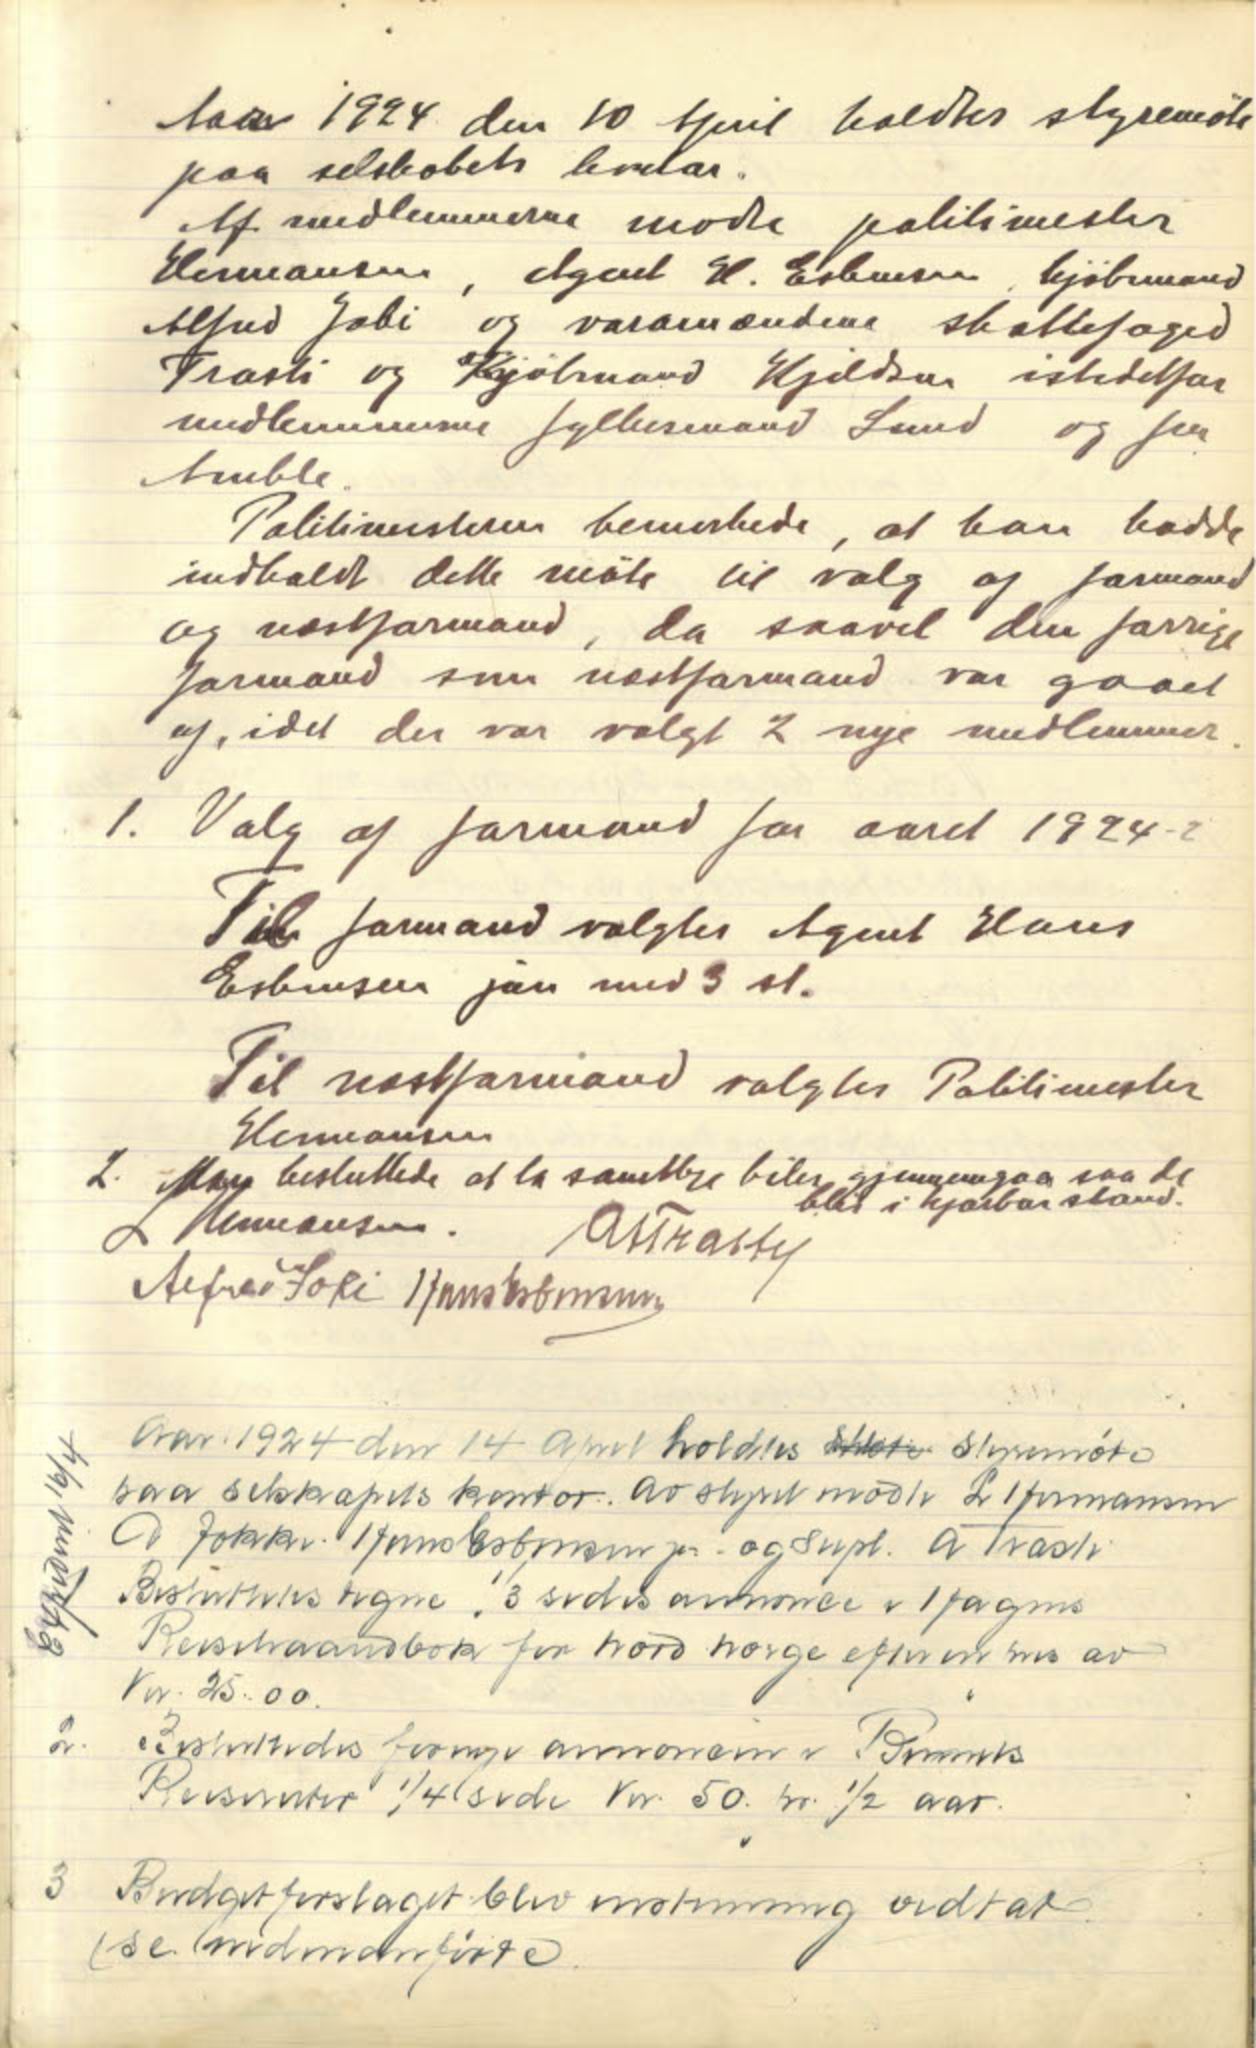 Aar 1924 den 10 April holdtes styremöte
paa selskabets kontor.
Af medlemmerne mødte politimester
Hermansen, Agent H. Esbensen, kjöbmand
Alfred Joki og varamændene skattefoged
Trasti og Kjöbmand Kjeldsen istedetfor
medlemmerne fylkesmand Lund og fru
Amble.
Politimesteren bemerkede, at han hadde
indkaldt dette möte til valg af formand
og næstformand, da saavel den forrige
formand som næstformand var gaaet
af, idet der var valgt 2 nye medlemmer.
1. Valg af formand for aaret 1924-2
Til formand valgtes Agent Hans
Esbensen jun med 3 st.
Til næstformand valgtes Politimester
Hermansen
2. Man besluttede at la samtlige biler gjennemgaa saa de
blir i kjørbar stand.
L Hermansen. A Trasty
Alfred Joki Hans Esbensen
Aar 1924 den 14 April holdtes styremöte
paa selskapets kontor. Av styret mödte L Hermansen
A Jokki Hans Esbensen jr. og Supl. A Trasti
Besluttedes tegne 1/3 sides annonce i Hagens
Reisehaandbok for Nord Norge efter en pris av
Kr. 25.00.
2. Besluttedes fornye annoncen i Bennets
Reiseruter 1/4 side Kr. 50. pr. 1/2 aar.
3 Budgetforslaget blev enstemmig vedtat
(se nedenanförte